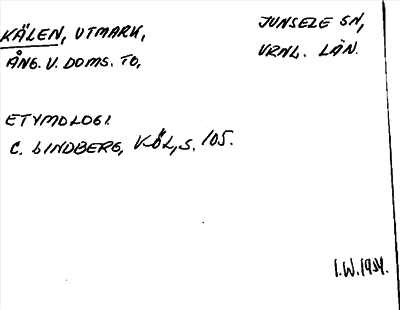 KÄLEN, UTMARK,
JUNSELE SN,
ÅNG. V. DOMS. TO,
VRNL. LÄN.
ETYMOLOGI.
C. LINDBERG, KÖL, S. 105.
I.W. 1934.